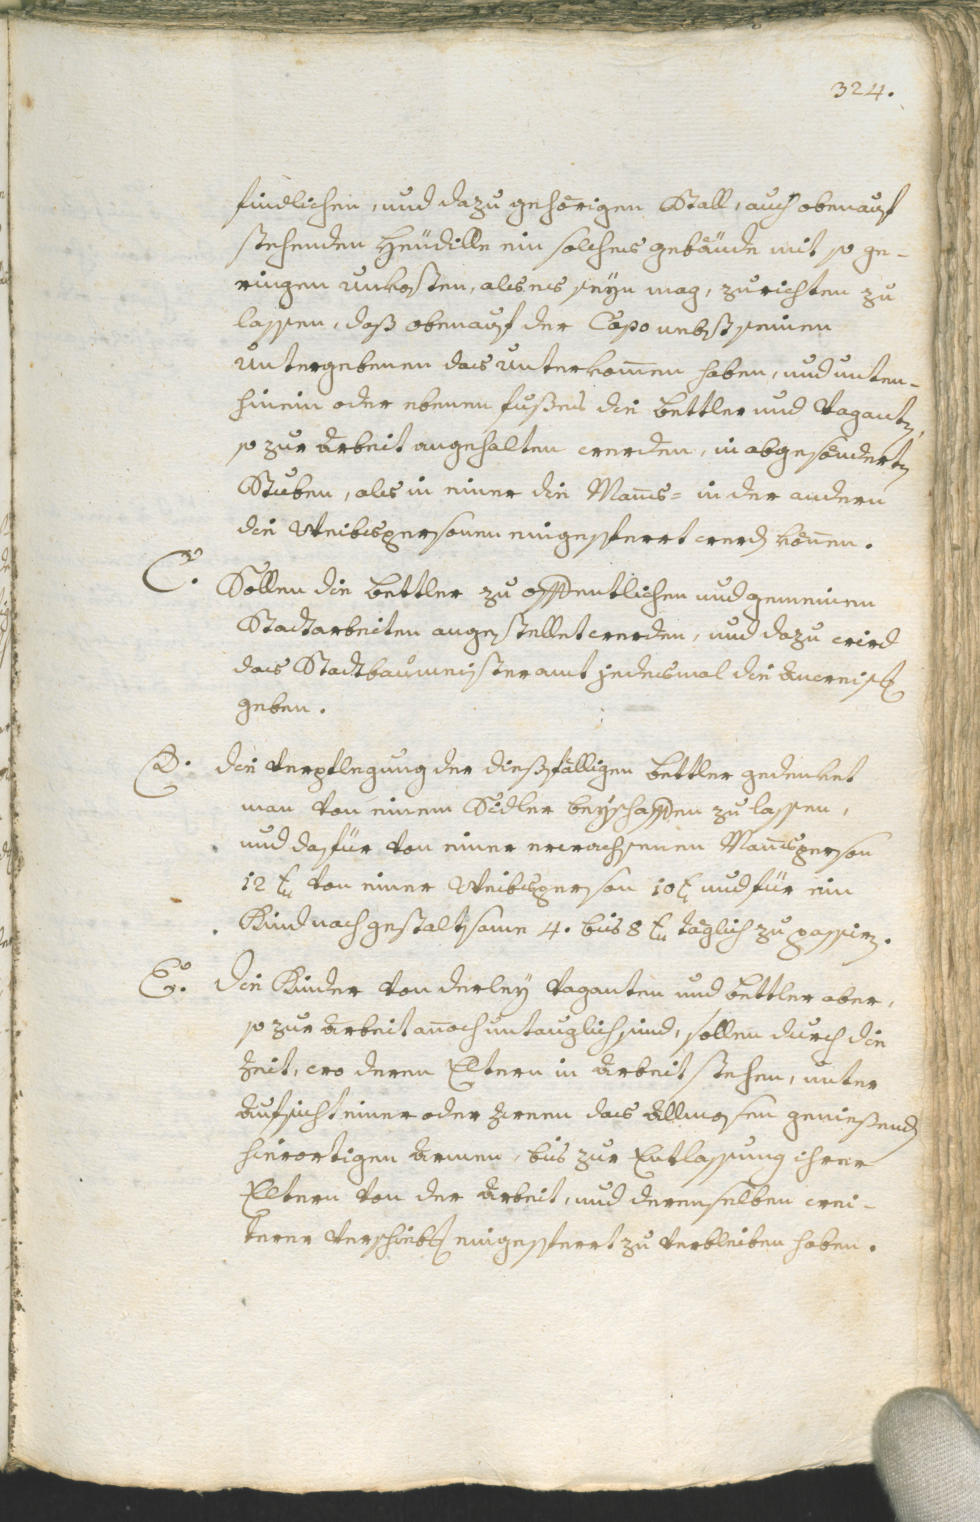 324.
findlichen, und dazu gehörigen Stall, auch obenauf
stehenden Heüdille ein solches gebäude mit so ge-
ringen Unkosten, als es seÿn mag, zurichten zu
lassen, daß obenauf der Capo nebst seinen
Untergebenen das Unterkom̄en haben, und unten-
hinein oder ebenen fußes die bettler und Vagantẽ,
so zur Arbeit angehalten werden, in abgesönderten
Stuben, als in einer die Man̄s- in der andern
die Weibspersonen eingesperrt werdẽ kön̄en.
C. Sollen die bettler zu offentlichen und gemeinen
Stadtarbeiten angestellet werden, und dazu wird
das Stadtbaumeisteramt jedesmal die Anweisũg
geben.
D. die Verpflegung der dießfälligen bettler gedenket
man von einem Südler beÿschaffen zu lassen,
und dafür von einer erwachsenen Man̄sperson
12 xr von einer Weibsperson 10 xr und für ein
Kind nach gestaltsame 4. bis 8 xr täglich zu passirẽ.
E. die Kinder von derleÿ Vaganten und bettler aber,
so zur Arbeit an̄och untauglich sind, sollen durch die
Zeit, wo deren Eltern in Arbeit stehen, unter
Aufsicht einer oder zween das Allmosen genießendẽ
hierortigen Armen, bis zur Entlassung ihrer
Eltern von der Arbeit, und derenselben wei-
terer Verschiebũg eingesperrt zu verbleiben haben.